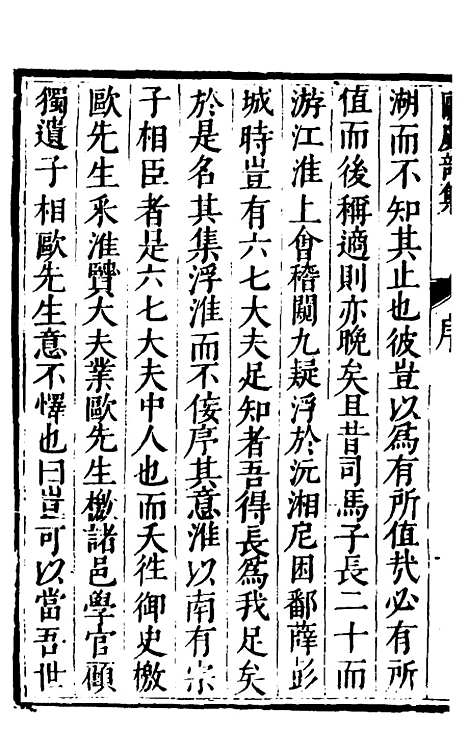 湖而不知其止也彼豈以爲有所值㢤必有所
值而後稱適則亦晚矣且昔司馬子長二十而
游江淮上會稽闚九疑浮於沅湘戹困鄱薛彭
城時豈有六七大夫足知者吾得長爲我足矣
於是名其集浮淮而不佞序其意淮以南有宗
子相臣者是六七大夫中人也而夭徃御史檄
歐先生采淮賢大夫業歐先生檄諸邑學官顧
獨遺子相歐先生意不懌也曰豈可以當吾世